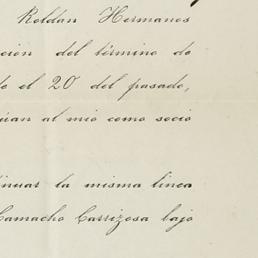 Roldan Hermanos
cion del término de
el 20 del pasado,
al mio como socio
nuar la misma linea
Camacho Carrizosa bajo